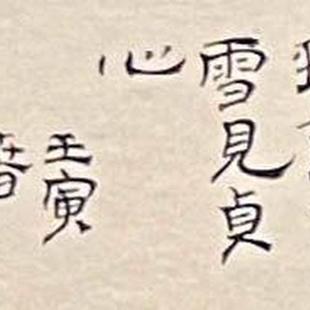 雪見貞
心
壬寅